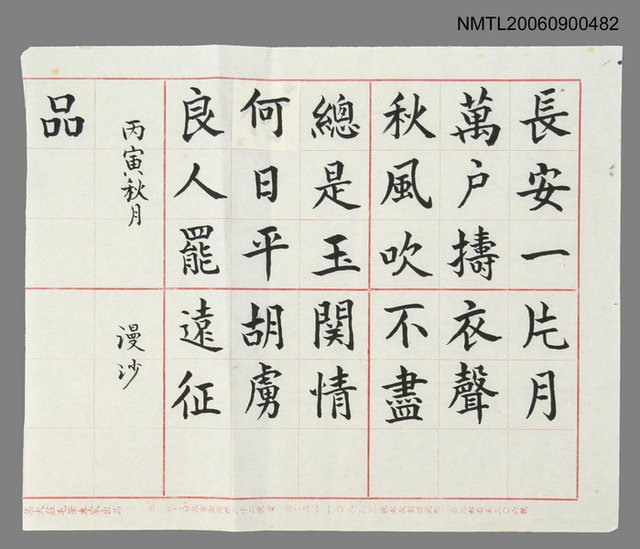 NMTL20060900482
長安一片月
萬戶擣衣聲
秋風吹不盡
總是玉関情
何日平胡虜
良人罷遠征
丙寅秋月 漫沙
品